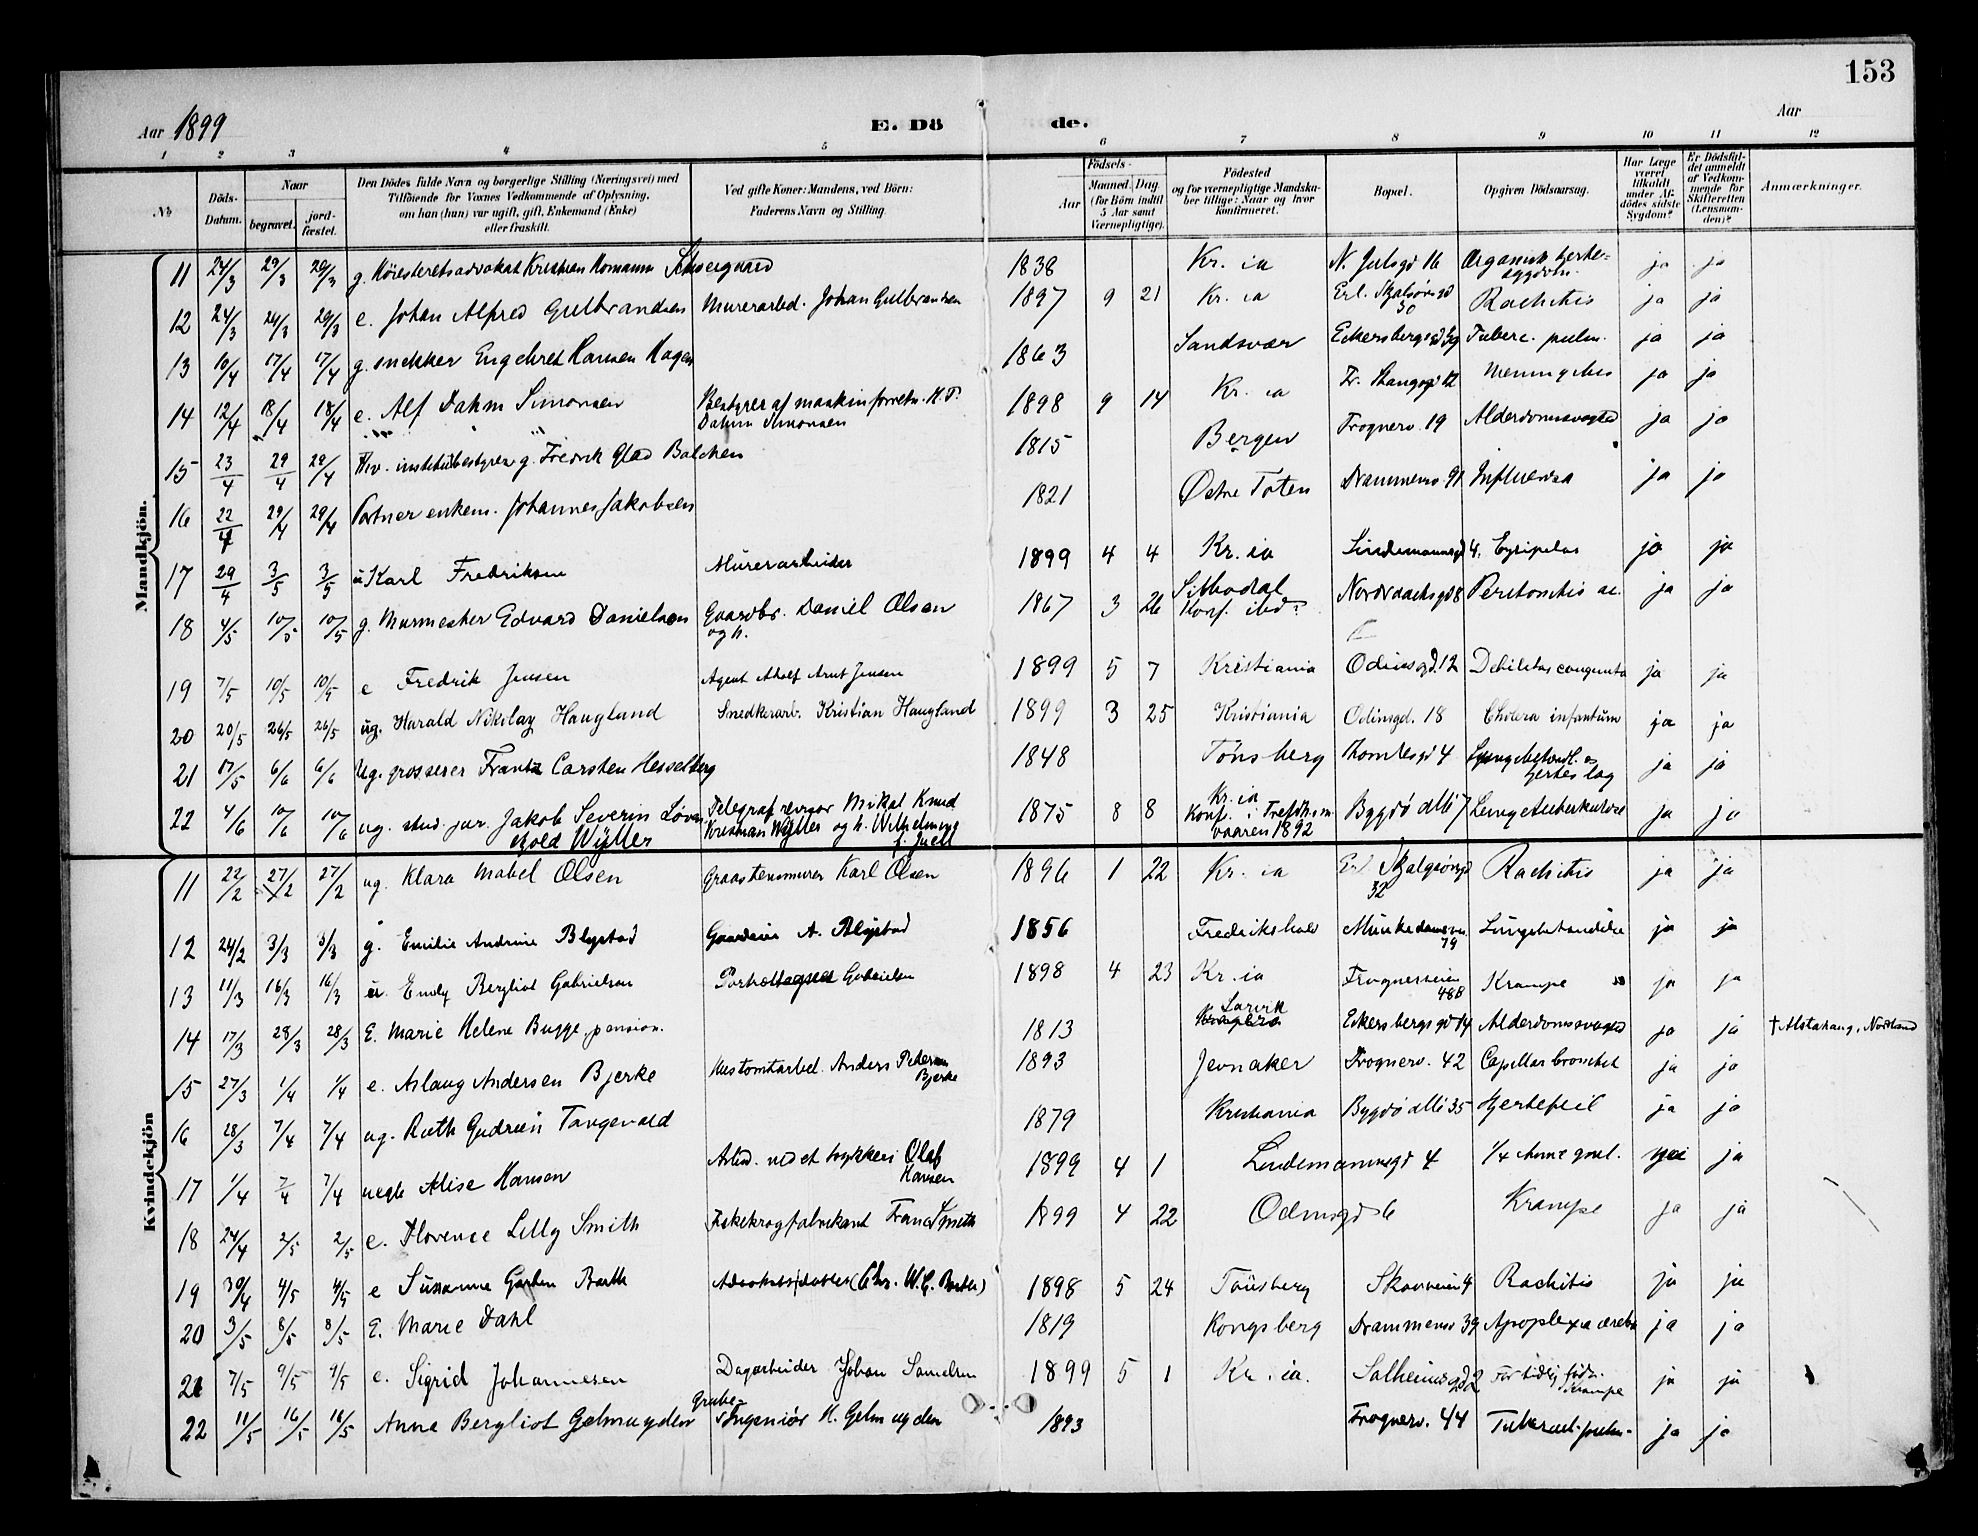 153
Aar 1899
E. Dö de.
Aar
1 2 3 4 5 6 7 8 9 10 11 12
No
Döds-Datum.
Naar begravet. jordfæstet.
Den Dödes fulde Navn og borgerlige Stilling (Næringsvei) med
Tilföiende for Voxnes Vedkommende af Oplysning,
om han (hun) var ugift, gift, Enkemand (Enke)
eller fraskilt.
Ved gifte Koner: Mandens, ved Börn:
Faderens Navn og Stilling
Födsels-
Aar Maaned. Dag.
(for Börn indtil 5 Aar samt Værnepligtige).
Födested
og for værnepligtige Mandskaber tillige: Naar og hvor konfirmeret.
Bopæl.
Opgiven Dödsaarsag.
Har Læge været tilkaldt under Afdödes sidste Sygdom?
Er Dödsfaldet anmeldt af Vedkommende for Skifteretten (Lensmanden)?
Anmærkninger.
Mandkjön.
11 24/3 29/3 29/3 g. Höiesteretsadvokat Kristian Homann 1838 Kr.ia N. Julsgd 16 Organisk hjerte= ja ja
12 24/3 29/3 e. Johan Alfred Gulbrandsen Murerarbed. Johan Gulbrandsen 1897 9 21 Kr.ia 30 Rachitis ja ja
13 10/4 17/4 17/4 g. snekker Engebret Hansen Hagen 1863 Sandsvær Eckersbergsgd 39 Tuberc. pulm. ja ja
14 12/4 18/4 18/4 e. Alf Dahm Simonsen Bestyrer af maskinforretn. Dahm Simonsen 1898 9 14 Kr.ia Fr. Stangsgd 12 Meningitis ja ja
15 23/4 29/4 29/4 g. Fredrik Glad Balchen 1815 Bergen Frognerv. 19 Alderdomssvaghed ja ja
16 22/4 29/4 29/4 Portner enkem. Johannes Jakobsen 1821 Østre Toten Drammensv 91 Influenza ja ja
17 29/4 3/5 3/5 Karl Fredriksen Murerarbeider 1899 4 4 Kr.ia Lindemannsgd 4. ja ja
18 4/5 10/5 10/5 g. Murmester Edvard Danielsen Gaardbr. Daniel Olsen og h. 1867 3 26 Konf. ibd. Nordraaksgd 8 Peritonitis ac. ja ja
19 7/5 10/5 10/5 e Fredrik Jensen Agent Adolf Arnt Jensen 1899 5 7 Kristiania Odinsgd. 12 Debilitas congenita ja ja
20 20/5 26/5 26/5 ug. Harald Nikolay Haugland Snedkerarb. Kristian Haugland 1899 3 25 Kristiania Odinsgd. 18 Cholera infantum ja ja
21 17/5 6/6 6/6 Ug. grosserer Frantz Carsten Hesselberg 1848 Tönsberg Thomlesgd 4 hjerteslag ja ja
22 4/6 10/6 10/6 ug. stud. jur. Jakob Severin Wyller Telegrafrevisor Mikal Knud Kristian Wyller og h. Wilhelmine f. Juell 1875 8 8 Kr.ia Konf. i Trefoldh. vaaren 1892 Bygdö allé 7 Lungetuberkulose ja ja
Kvindekjön
11 22/2 27/2 27/2 ug. Klara Mabel Olsen Graastensmurer Karl Olsen 1896 1 22 Kr.ia 32 Rachitis ja ja
12 24/2 3/3 3/3 g. Emilie Andrine Blystad A. Blystad 1856 Fredrikshald Munkedamsvn 79 Lungebetændelse ja ja
13 11/3 16/3 16/3 Emly Bergliot Gabrielsen Gabrielsen 1898 4 23 Kr.ia Frognerveien 48B Krampe ja ja
14 17/3 28/3 28/3 E. Marie Helene Bugge, pension. 1813 Larvik Eckersbergsgd 14 Alderdomssvaghed ja ja † Alstahaug, Nordland
15 27/3 1/4 1/4 e. Aslaug Andersen Bjerke Anders Pedersen Bjerke 1893 Jevnaker Frognerv. 42 Capillærbronchit ja ja
16 28/3 7/4 7/4 ug. Ruth Gudrun Tangevald 1879 Kristiania Bygdö allé 35 Hjertefeil ja ja
17 1/4 7/4 7/4 uegte Alise Hansen Arbd. ved et trykkeri Olaf Hansen 1899 4 1 Lindemannsgd 4 nei ja
18 24/4 2/5 2/5 e. Florence Lilly Smith Fiskekrogfabrikant Frank Smith 1899 4 22 Odinsgd 6 Krampe ja ja
19 30/4 4/5 4/5 e Susanne Barth (Chr. W. C. Barth) 1898 5 24 Tönsberg Skovveien 9 Rachitis ja ja
20 3/5 8/5 8/5 E. Marie Dahl 1819 Kongsberg Drammensv 39 Apoplexia cerebri ja ja
21 7/5 9/5 9/5 e. Sigrid Johannesen Dagarbeider Johan Samelsen 1899 5 1 Kr.ia. Solheimsgd 2 For tidlig födn. Krampe ja ja
22 11/5 16/5 16/5 Anna Bergliot Gelmuyden Grube-Ingeniör H. Gelmuyden 1893 Frognerv. 44 Tuberkul. pulm. ja ja